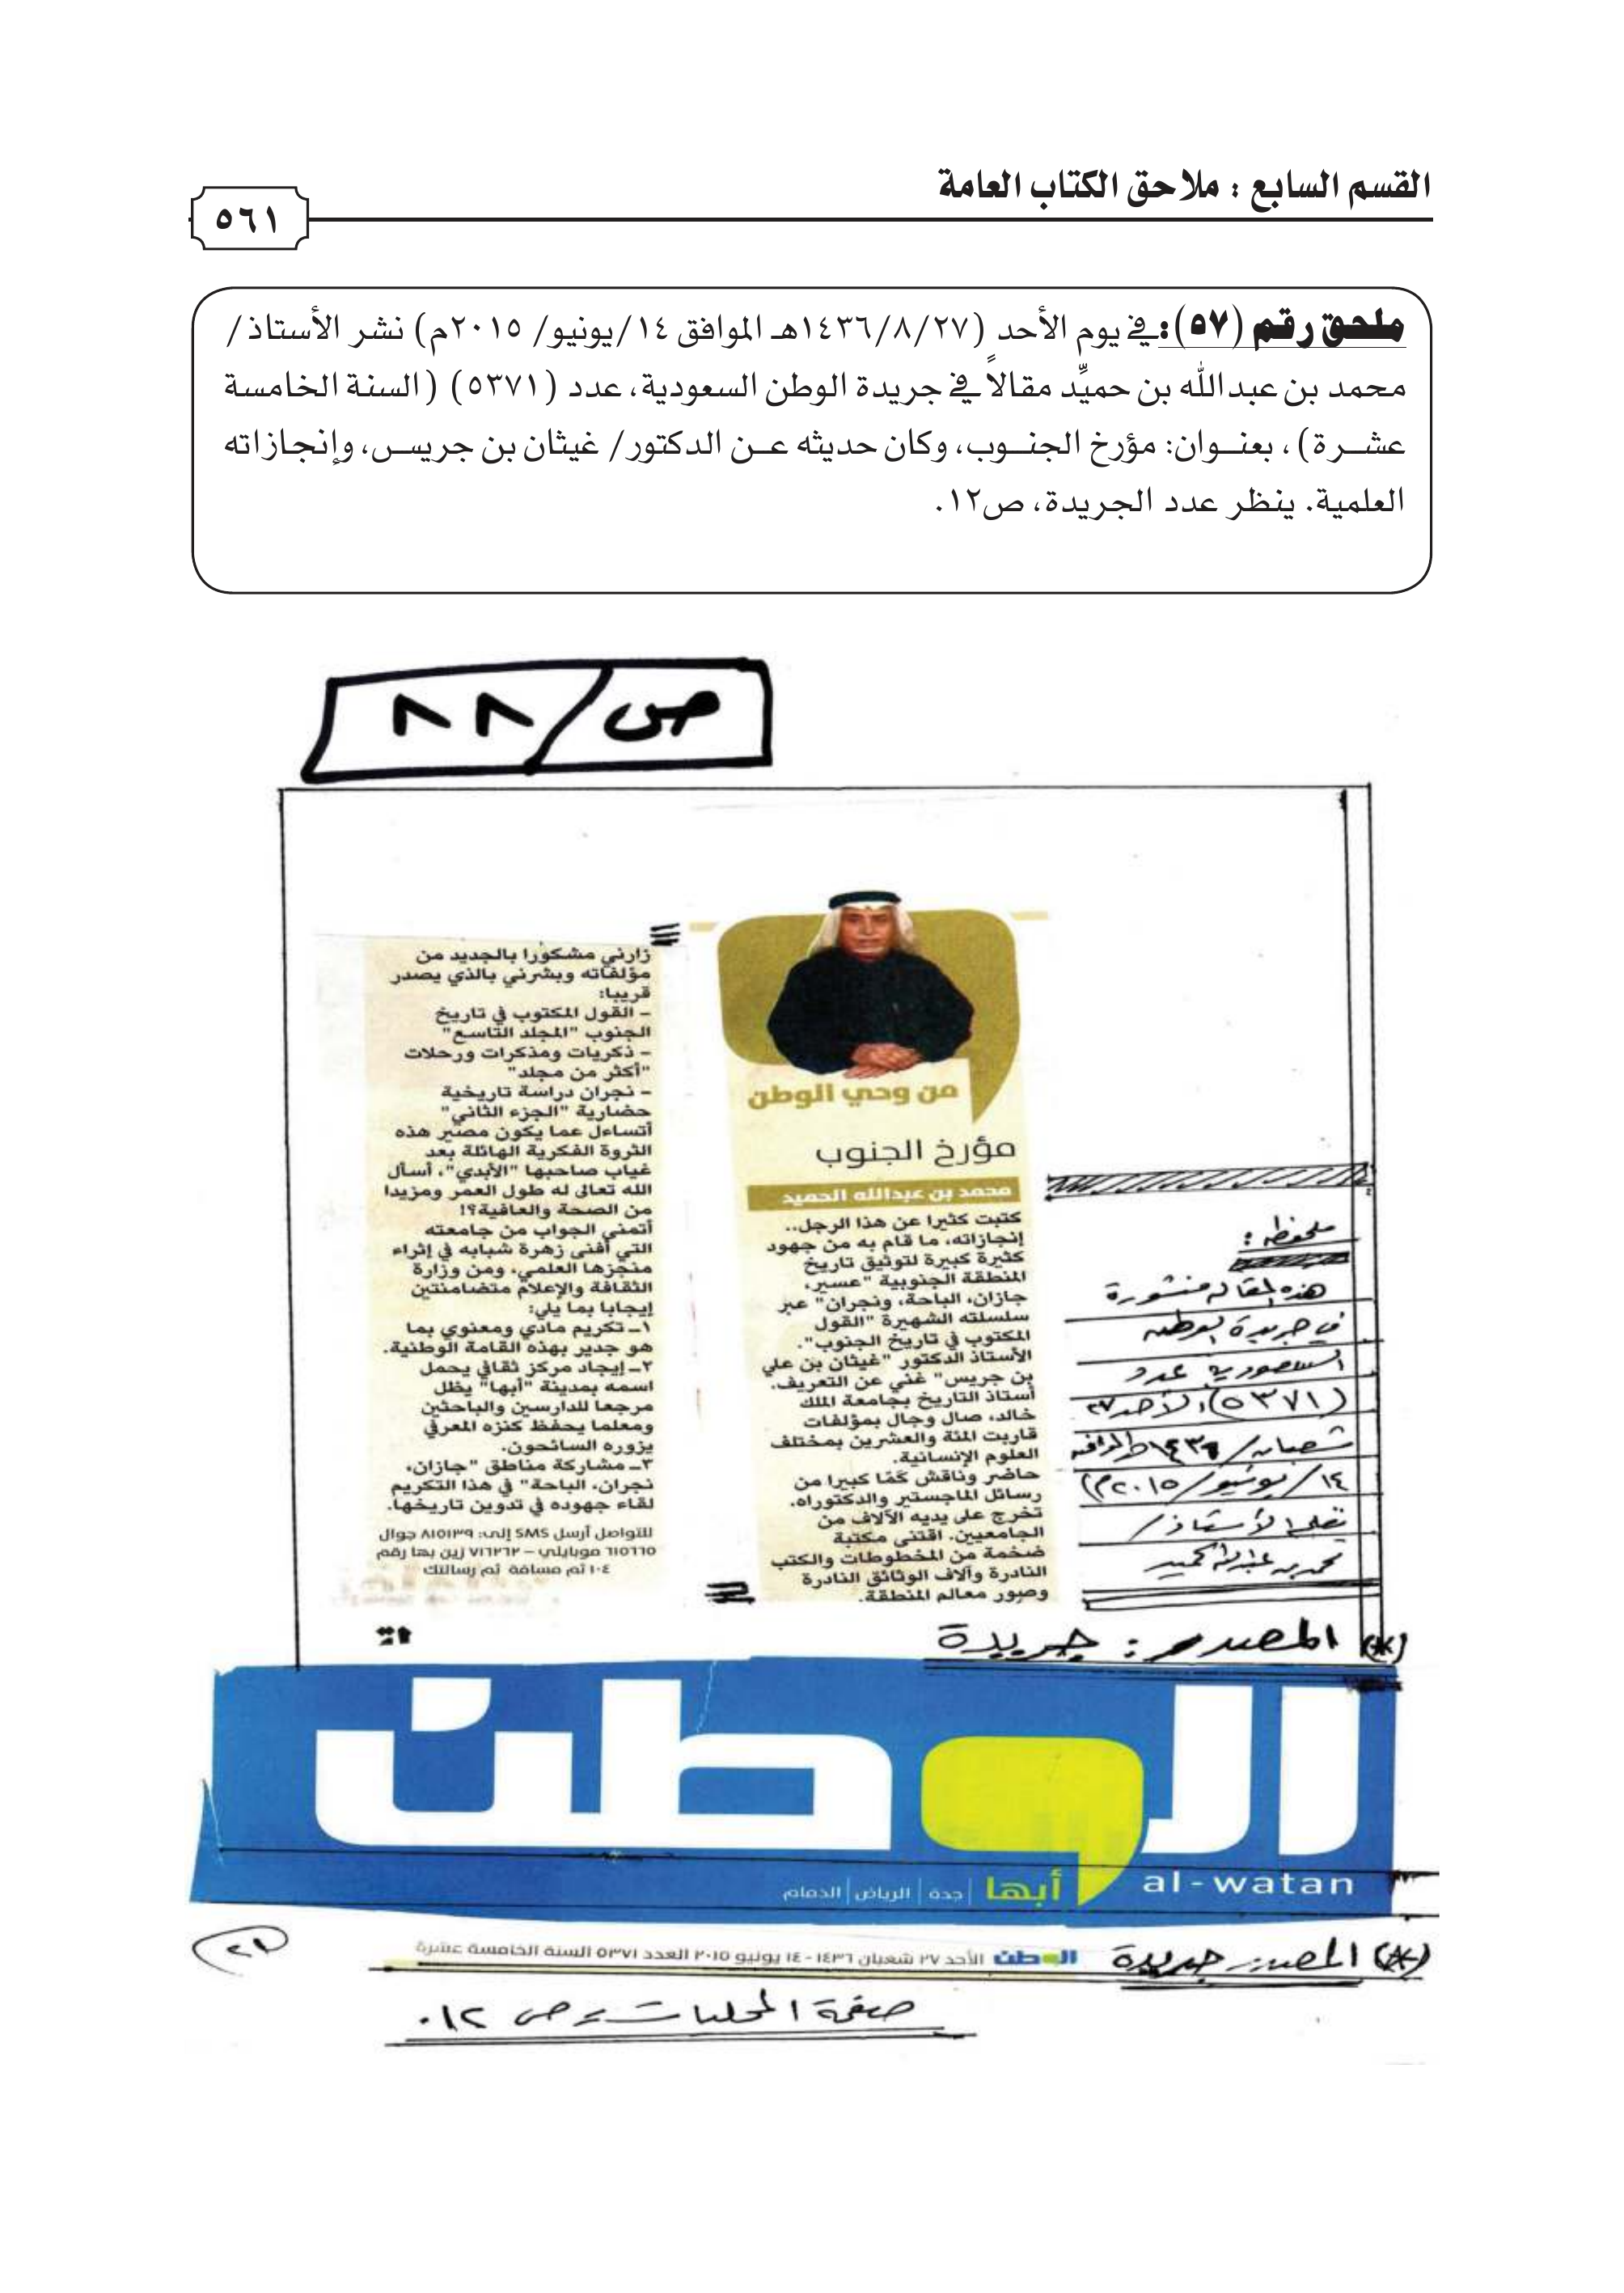 القسم السابع : ملاحق الكتاب العامة
٥٦١
ملحق رقم (٥٧): في يوم الأحد (١٤٣٦/٨/٢٧هـ الموافق ١٤/يونيو/ ٢٠١٥م) نشر الأستاذ/
محمد بن عبدالله بن حميِّد مقالاً في جريدة الوطن السعودية، عدد (٥٣٧١) (السنة الخامسة
عشرة)، بعنوان: مؤرخ الجنوب، وكان حديثه عن الدكتور/ غيثان بن جريس، وإنجازاته
العلمية. ينظر عدد الجريدة، ص١٢.
ص/ ٨٨
من وحي الوطن
مؤرخ الجنوب
محمد بن عبدالله الحميد
كتبت كثيرا عن هذا الرجل..
إنجازاته، ما قام به من جهود
كثيرة كبيرة لتوثيق تاريخ
المنطقة الجنوبية "عسير،
جازان، الباحة، ونجران" عبر
سلسلته الشهيرة "القول
المكتوب في تاريخ الجنوب".
الأستاذ الدكتور "غيثان بن علي
بن جريس" غني عن التعريف.
أستاذ التاريخ بجامعة الملك
خالد، صال وجال بمؤلفات
قاربت المئة والعشرين بمختلف
العلوم الإنسانية.
حاضر وناقش كمّا كبيرا من
رسائل الماجستير والدكتوراه.
تخرج على يديه الآلاف من
الجامعيين. اقتنى مكتبة
ضخمة من المخطوطات والكتب
النادرة وآلاف الوثائق النادرة
وصور معالم المنطقة.
زارني مشكورا بالجديد من
مؤلفاته وبشرني بالذي يصدر
قريبا:
- القول المكتوب في تاريخ
الجنوب "المجلد التاسع"
- ذكريات ومذكرات ورحلات
"أكثر من مجلد"
- نجران دراسة تاريخية
حضارية "الجزء الثاني"
أتساءل عما يكون مصير هذه
الثروة الفكرية الهائلة بعد
غياب صاحبها "الأبدي"، أسأل
الله تعالى له طول العمر ومزيدا
من الصحة والعافية؟!
أتمنى الجواب من جامعته
التي أفنى زهرة شبابه في إثراء
منجزها العلمي، ومن وزارة
الثقافة والإعلام متضامنتين
إيجابا بما يلي:
١ـ تكريم مادي ومعنوي بما
هو جدير بهذه القامة الوطنية.
٢ـ إيجاد مركز ثقافي يحمل
اسمه بمدينة "أبها" يظل
مرجعا للدارسين والباحثين
ومعلما يحفظ كنزه المعرفي
يزوره السائحون.
٣ـ مشاركة مناطق "جازان،
نجران، الباحة" في هذا التكريم
لقاء جهوده في تدوين تاريخها.
للتواصل أرسل SMS إلى: ٨١٥١٣٩ جوال
٦١٥٦٦٥ موبايلي - ٧١٦٢٦٢ زين بها رقم
١٠٤ ثم مسافة ثم رسالتك
ملحوظة :
هذه المقالة منشورة
في جريدة الوطن
السعودية عدد
(٥٣٧١) الأحد ٢٧
شعبان/ ١٤٣٦هـ الموافق
١٤/ يونيو/ ٢٠١٥م)
بقلم الأستاذ/
محمد بن عبدالله الحميد
(*) المصدر : جريدة
الوطن
al-watan
أبها | جدة | الرياض | الدمام
(*) المصدر جريدة
الوطن الأحد ٢٧ شعبان ١٤٣٦ - ١٤ يونيو ٢٠١٥ العدد ٥٣٧١ السنة الخامسة عشرة
صفحة المحليات = ص ١٢.